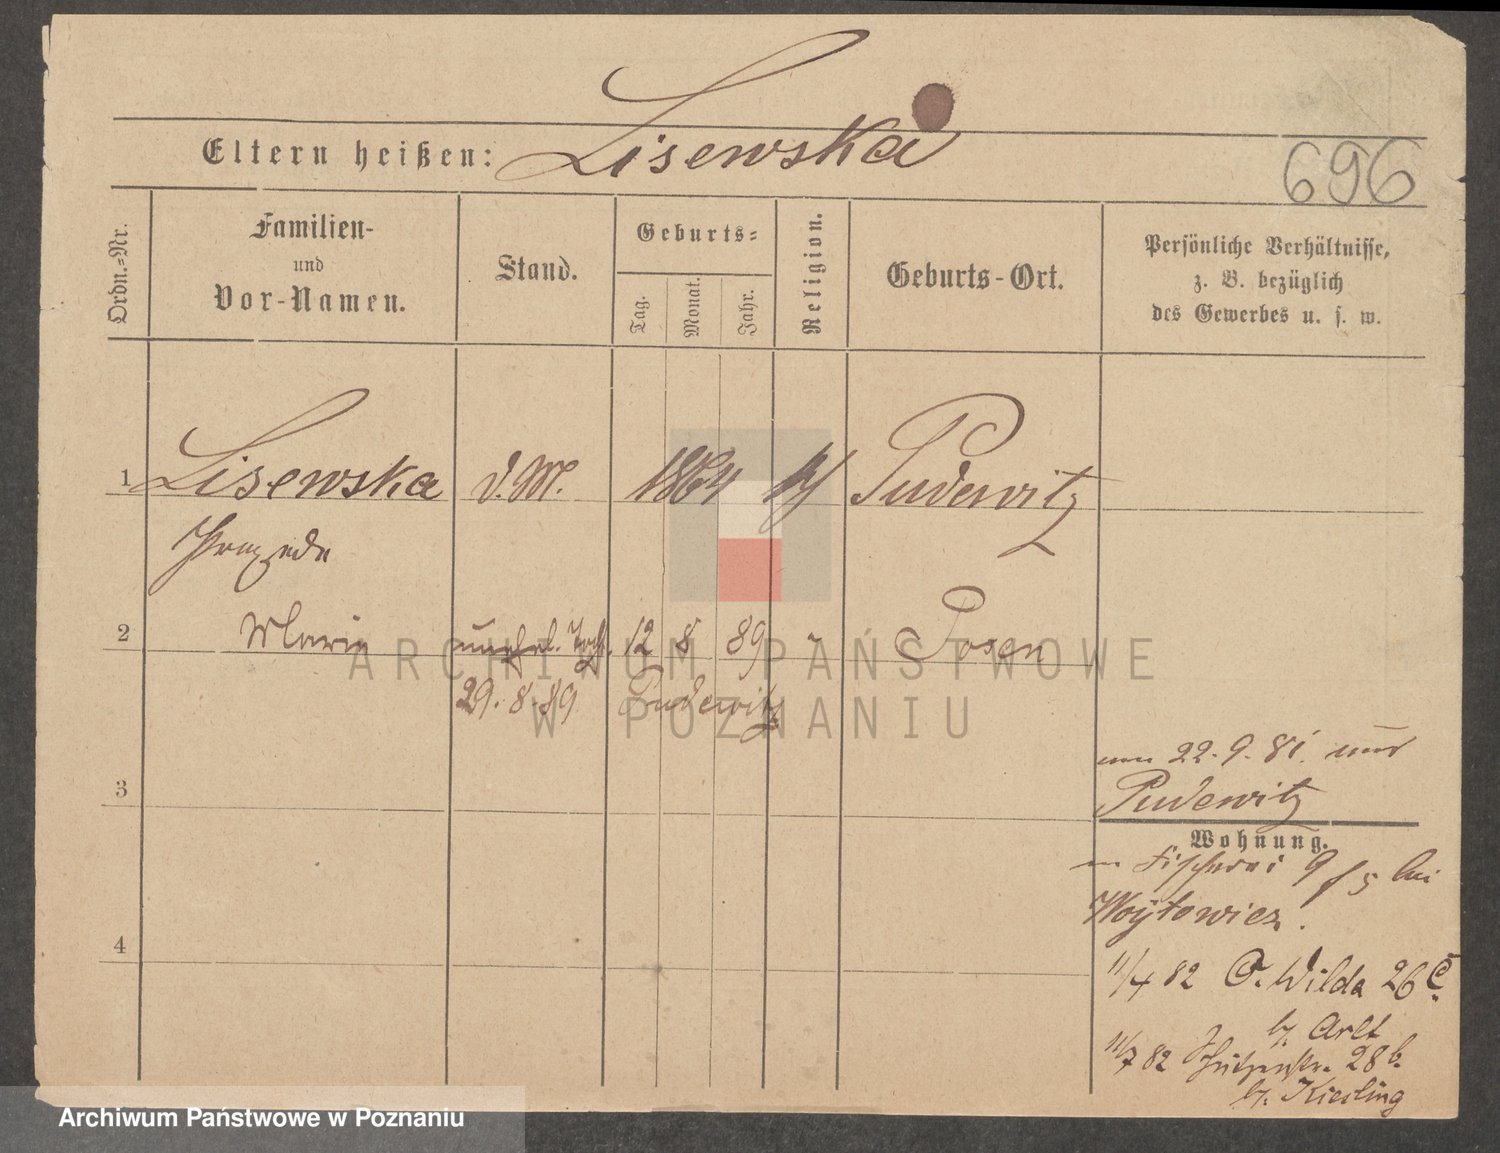 Lisewska
Eltern heißen:
696
Ordn.-Nr.
Familien-
und
Vor-Namen.
Stand.
Geburts-
Tag.
Monat.
Jahr.
Religion.
Geburts-Ort.
Persönliche Verhältnisse,
z. B. bezüglich
des Gewerbes u. s. w.
1 Lisewska d. M. 1864 k/ Pudewitz
Praxede
2 Maria unehel. Tocht. 12 8 89 " Posen
29. 8. 89 Pudewitz
3
22. 9. 81. aus
Pudewitz
Wohnung.
Fischerei 9 / 5 bei
Woytowicz.
4
11/4 82 O. Wilda 26 C.
b. Arlt
11/7 82 Schützenstr. 28 b.
b. Kiesling
ARCHIWUM PAŃSTWOWE
W POZNANIU
Archiwum Państwowe w Poznaniu